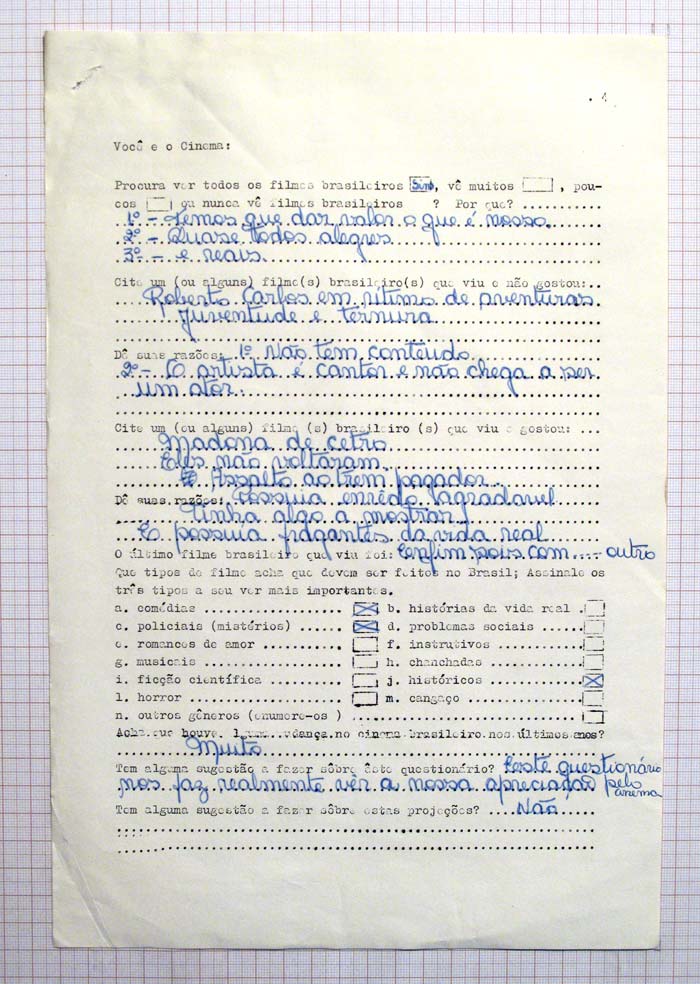 . 4
Você e o Cinema:
Procura ver todos os filmes brasileiros Sim, vê muitos , pou-
cos ou nunca vê filmes brasileiros ? Por que? ...........
1º - Temos que dar valor o que é nosso
2º - Quase todos alegres
3º - e reais.
Cite um (ou alguns) filme(s) brasileiro(s) que viu e não gostou:..
Roberto Carlos em rítimo de aventuras
Juventude e ternura
Dê suas razões: 1º Não tem conteudo
2º - O artista é cantor e não chega a ser
um ator.
Cite um (ou alguns) filme (s) brasileiro (s) que viu e gostou: ...
Madona de cetro
Eles não voltaram
Assalto ao trem pagador
Dê suas razões: Possuia enrêdo agradavel
Tinha algo a mostrar
E possuia fragantes da vida real
O último filme brasileiro que viu foi: Enfim sous com .... outro
Que tipos de filme acha que devem ser feitos no Brasil; Assinale os
três tipos a seu ver mais importantes.
a. comédias .................. b. histórias da vida real .
c. policiais (mistérios) ...... d. problemas sociais ......
e. romances de amor ........... f. instrutivos ............
g. musicais ................... h. chanchadas .............
i. ficção científica .......... j. históricos .............
l. horror ..................... m. cangaço ................
n. outros gêneros (enumere-os ) ............................
Acha que houve mudança no cinema brasileiro nos últimos anos?
Muito
Tem alguma sugestão a fazer sôbre êste questionário? Êste questionário
nos faz realmente vêr a nossa apreciação pelo
cinema
Tem alguma sugestão a fazer sôbre estas projeções? ....Não